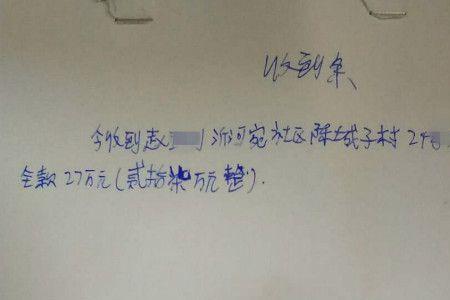 收到条
今收到赵 沂河宛社区陈土城子村24号
全款27万元(贰拾柒万元整).